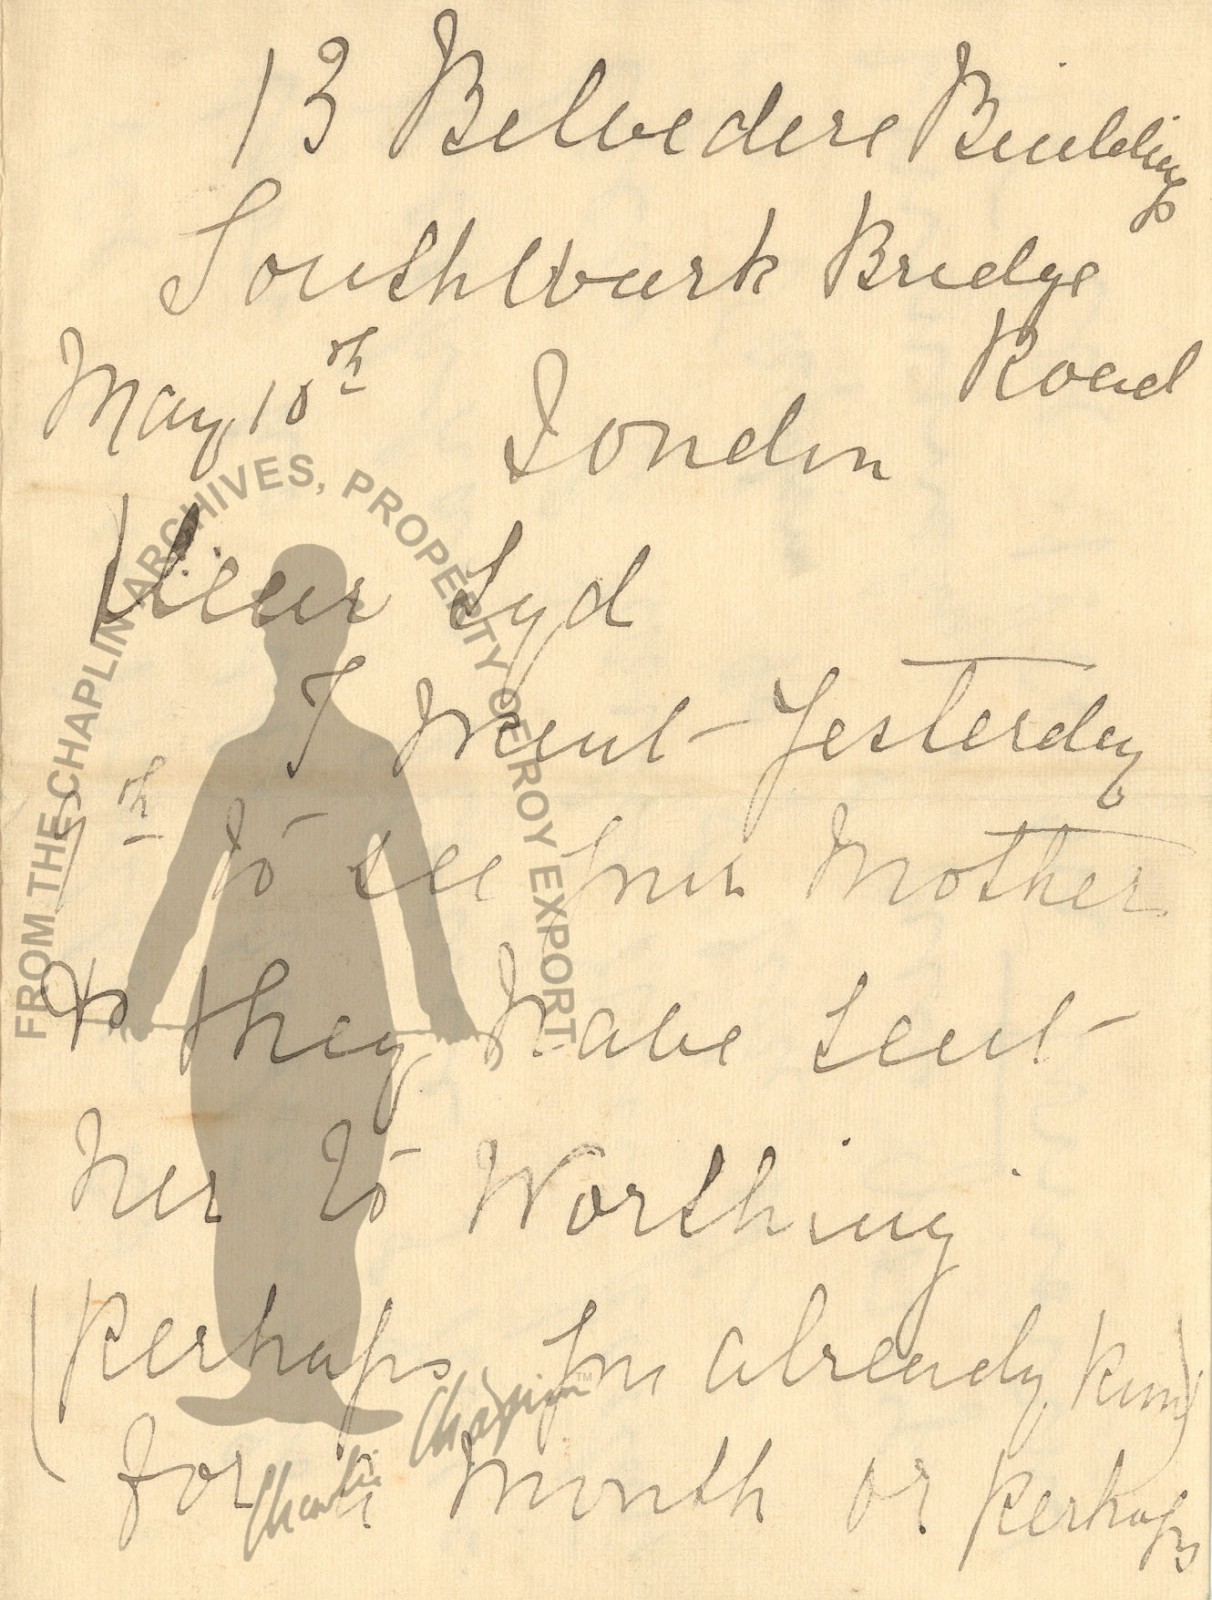 13 Belvedere Buildings
Southwark Bridge
Road
May 10th London
Dear Syd
I went yesterday
to see your Mother
& they have sent
her to Worthing
(Perhaps you already know)
for a month or perhaps
FROM THE CHAPLIN ARCHIVES, PROPERTY OF ROY EXPORT
Charlie Chaplin™